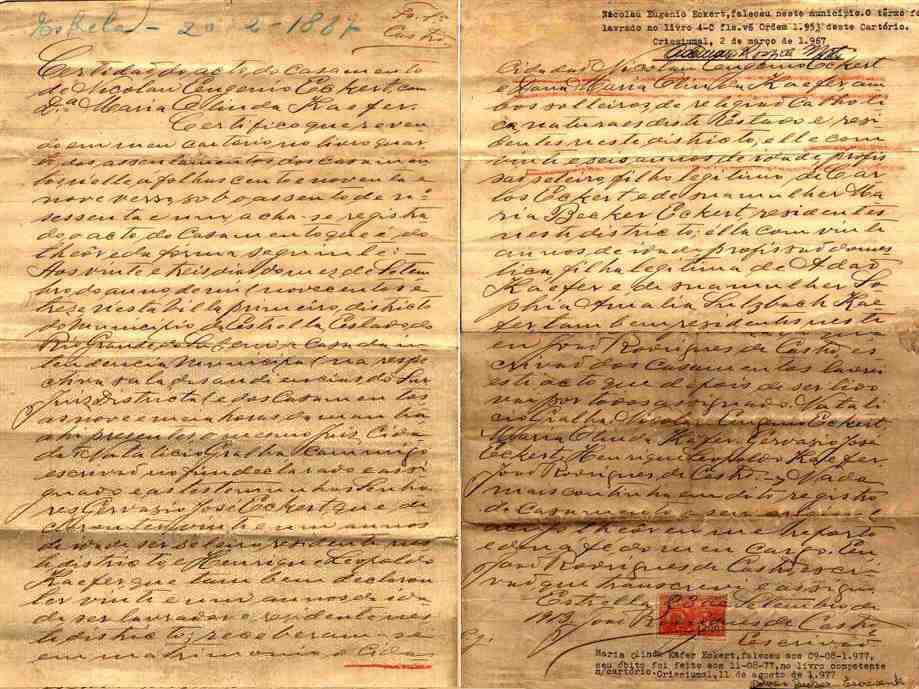 Estrela - 20-2-1887
Certidão do acto do casamento
de Nicolau Eugenio Eckert com
D.ª Maria Olinda Kaefer.
Certifico que reven
do em meu cartorio no livro quar
to dos assentamentos dos casamen
tos nelle a folhas cento e noventa e
nove verso, sob o assento de nº
sessenta e um, acha-se registra
do o acto do casamento que é do
theôr e da forma seguinte:—
Aos vinte e seis dias do mez de Setem
bro do anno de mil novecentos e
treze, nesta villa, primeiro districto
do Municipio da Estrella, Estado do
Rio Grande do Sul, em a casa da in
tendencia Municipal, na respe
ctiva sala das audiencias do
Juiz Districtal e dos Casamentos
as nove e meia horas da manhã
ahi presentes o mesmo juiz, Cida
dão Natalicio Gralha, commigo
escrivão no fim declarado e assi
gnado e as testemunhas Senho
res Gervazio José Eckert que de
clarou ter vinte e um annos
de idade, ser solteiro, residente neste
districto e Henrique Leopoldo
Kaefer que tambem declarou
ter vinte e um annos de ida
de, ser lavrador e residente nes
te districto; receberam-se
em matrimonio o Cida
Nicolau Eugenio Eckert, faleceu neste município. O têrmo f
lavrado no livro 4-C fls.v6 Ordem 1.953 deste Cartório.
Crissiumal, 2 de março de 1.967
Cidadão Nicolau Eugenio Eckert
e Dona Maria Olinda Kaefer, am
bos solteiros, de religião Catholi
ca, naturaes deste Estado e resi
dentes neste districto, elle com
vinte e seis annos de idade, profis
são seleiro, filho legitimo de Car
los Eckert e de sua mulher Ma
ria Becker Eckert, residentes
neste districto; ella com vinte
annos de idade, profissão domes
tica, filha legitima de Adão
Kaefer e de sua mulher So
phia Amalia Sulzbach Kae
fer, tambem residentes neste
eu João Rodrigues de Castro, es
crivão dos Casamentos lavrei
este acto que depois de ser lido
vae por todos assignado. Natali
cio Gralha, Nicolau Eugenio Eckert
Maria Olinda Kaefer. Gervazio José
Eckert, Henrique Leopoldo Kaefer.
João Rodrigues de Castro.—Nada
mais continha em dito registro
de casamento
theôr em me reporto
e dou fé do meu cargo. Eu
João Rodrigues de Castro escri
vão que transcrevi e assigno
Estrella, de Setembro de
João Rodrigues de Castro
Escrivão
Maria Olinda Käfer Eckert, faleceu aos 09-08-1.977,
seu óbito foi feito aos 11-08-77, no livro competente
n/cartório. Crissiumal, 11 de agosto de 1.977